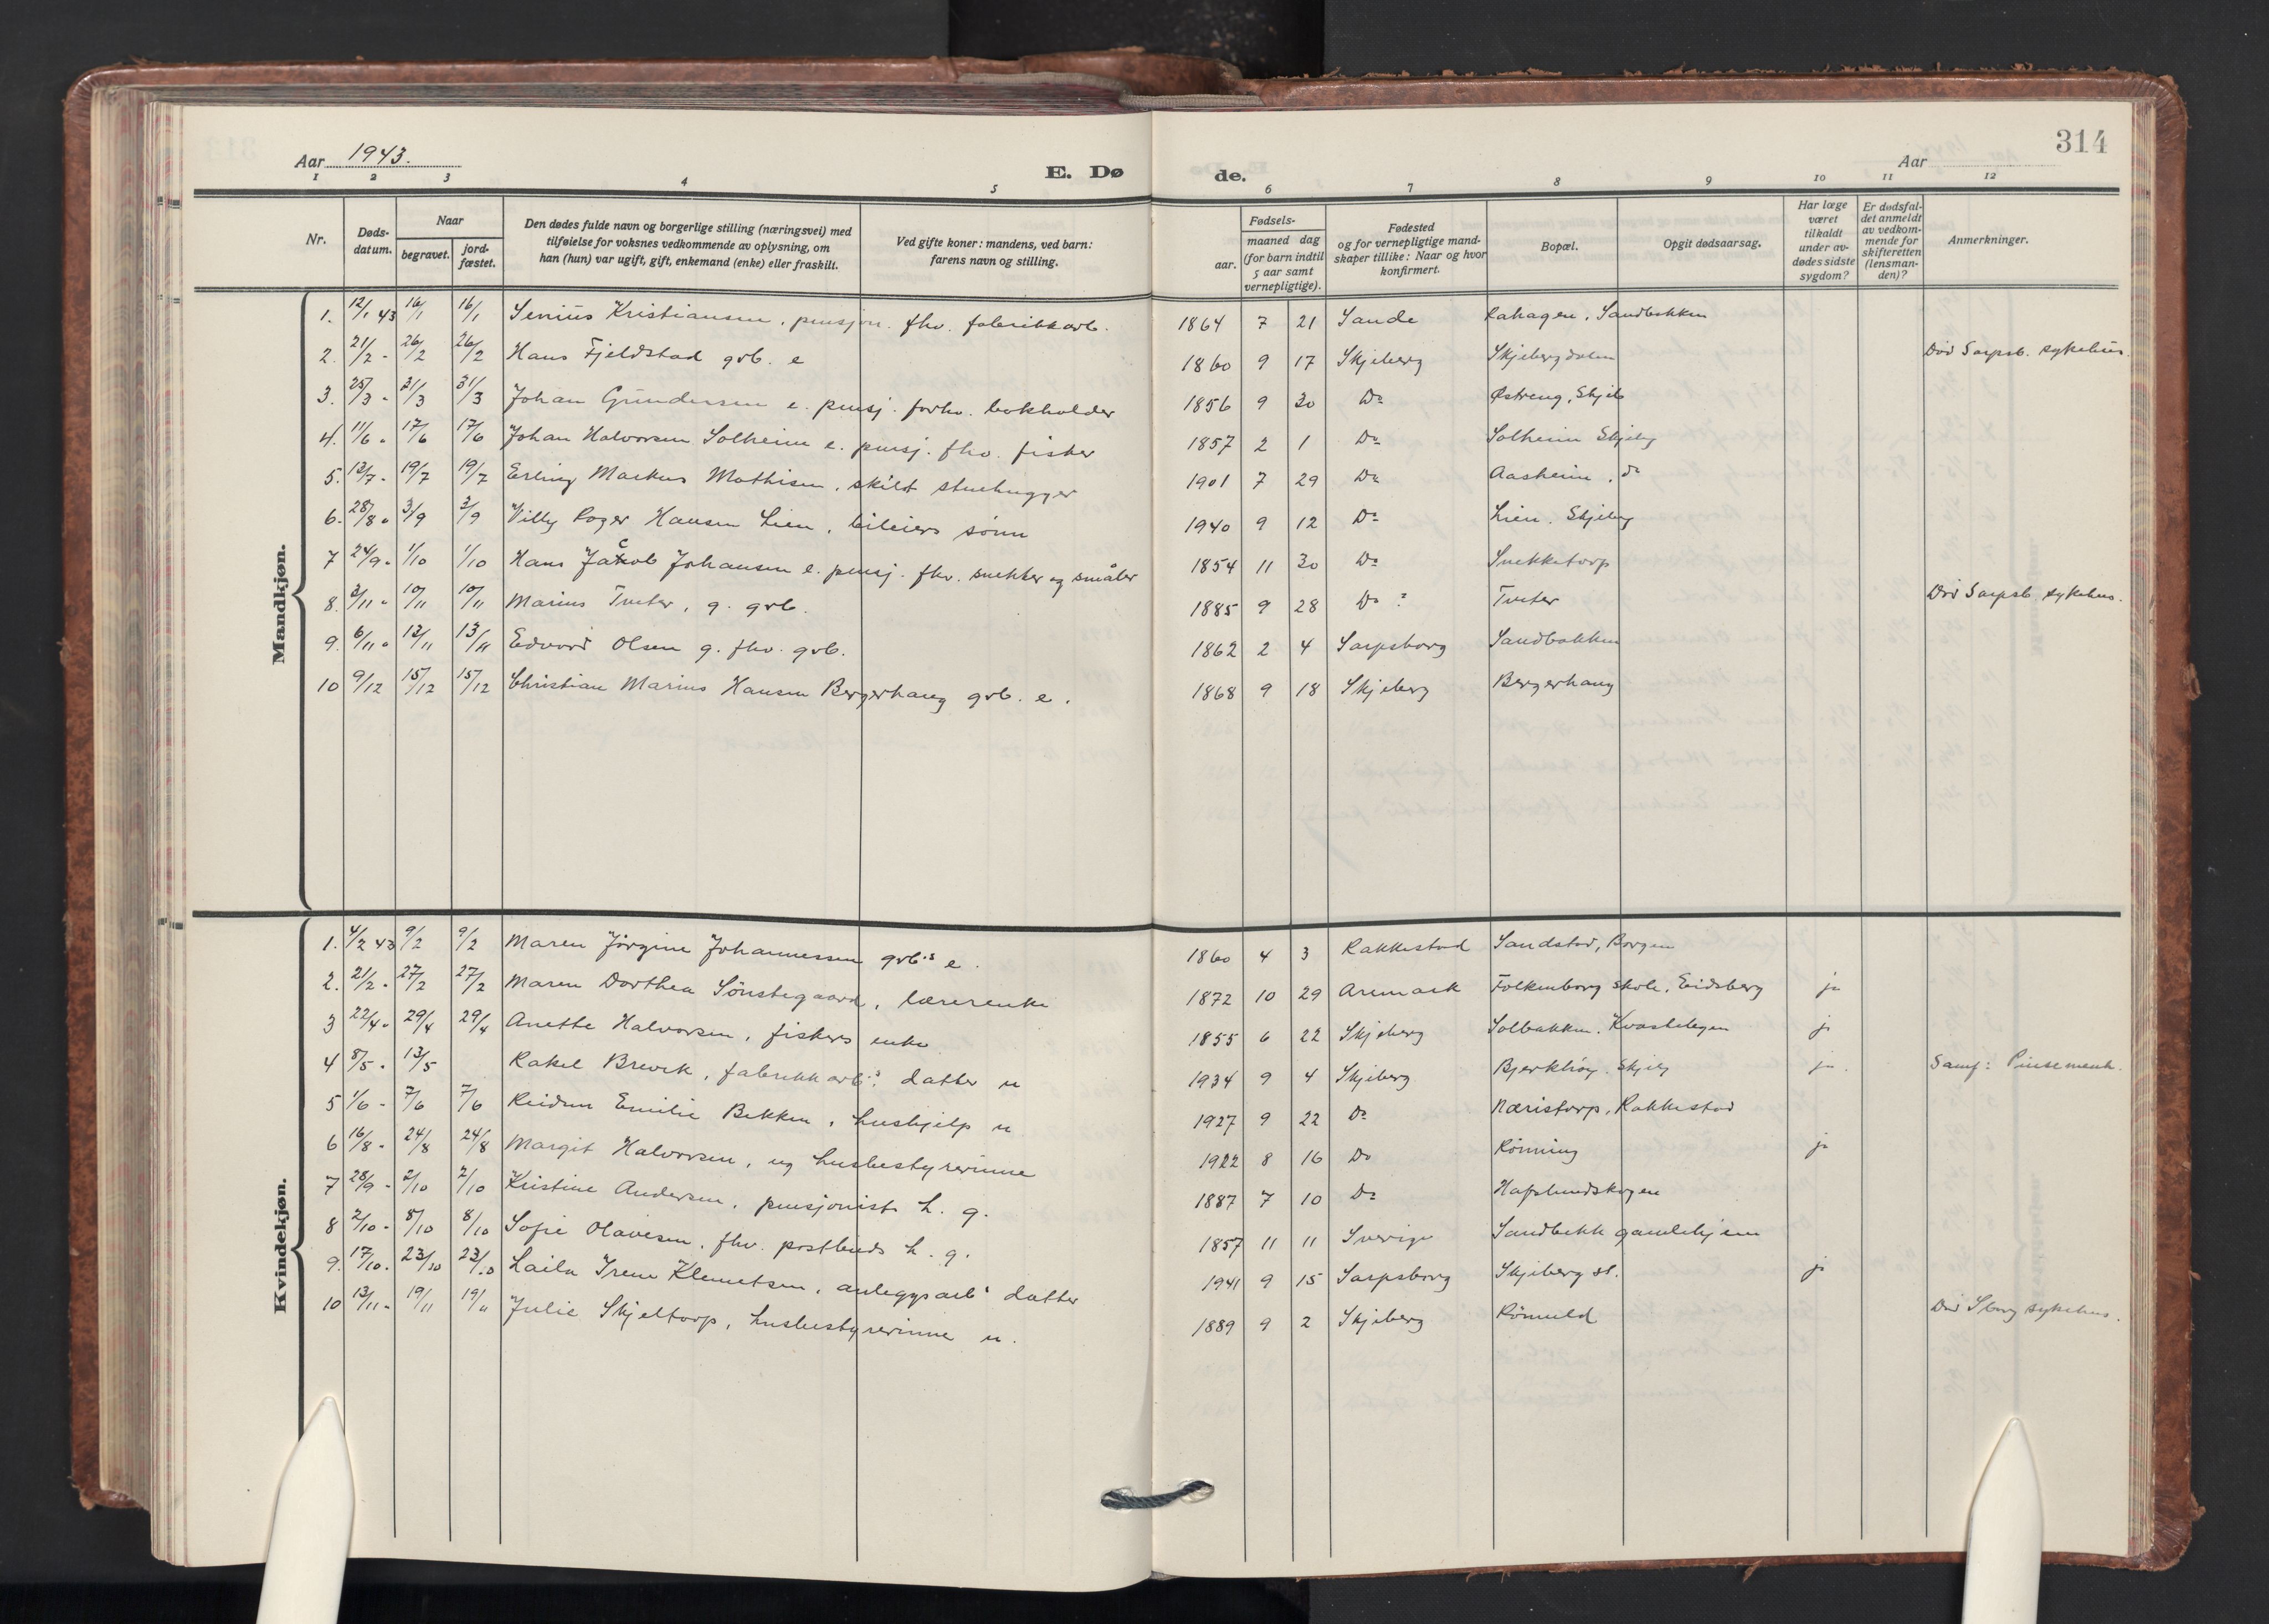 314
Aar 1943.
E. Dø
de.
Aar
1 2 3 4 5 6 7 8 9 10 11 12
Nr.
Døds-
datum.
Naar
begravet.
jord-
fæstet.
Den dødes fulde navn og borgerlige stilling (næringsvei) med
tilføielse for voksnes vedkommende av oplysning, om
han (hun) var ugift, gift, enkemand (enke) eller fraskilt.
Ved gifte koner: mandens, ved barn:
farens navn og stilling.
Fødsels-
aar.
maaned dag
(for barn indtil
5 aar samt
vernepligtige).
Fødested
og for vernepligtige mand-
skaper tillike: Naar og hvor
konfirmert.
Bopæl.
Opgit dødsaarsag.
Har læge
været
tilkaldt
under av-
dødes sidste
sygdom?
Er dødsfal-
det anmeldt
av vedkom-
mende for
skifteretten
(lensman-
den)?
Anmerkninger.
Mandkjøn.
1. 12/1 43 16/1 16/1 Senius Kristiansen, pensjon. fhv. fabrikkarb. 1864 7 21 Sande Rahagen, Sandbakken
2. 21/2 - 26/2 26/2 Hans Fjeldstad grb. e 1860 9 17 Skjeberg Skjebergdalen Död Sarpsb. sykehus.
3. 25/3 - 31/3 31/3 Johan Gundersen e. pensj. forhv. bokholder 1856 9 30 Do Østreng, Skjeb
4. 11/6 - 17/6 17/6 Johan Halvorsen Solheim e. pensj. fhv. fisker 1857 2 1 Do Solheim Skjebg
5. 13/7 - 19/7 19/7 Erling Markus Mathisen, skilt stuehugger 1901 7 29 Do Aasheim, do
6. 28/8 - 3/9 3/9 Willy Roger Hansen Lien, bileiers sönn 1940 9 12 Do Lien. Skjebg
7 24/9 - 1/10 1/10 Hans Jacob Johansen e. pensj. fhv. snekker og småbr 1854 11 30 Do Snekketorp
8. 3/11 - 10/11 10/11 Marius Tveter, g. grb. 1885 9 28 Do ? Tveter Död Sarpsb. sykehus.
9. 6/11 - 13/11 13/11 Edvard Olsen g. fhv. grb. 1862 2 4 Sarpsborg Sandbakken
10 9/12 15/12 15/12 Christian Marius Hansen Bergerhaug grb. e. 1868 9 18 Skjeberg Bergerhaug
Kvindekjøn.
1. 4/2 43 9/2 9/2 Maren Jörgine Johannessen grb.s e. 1860 4 3 Rakkestad Sandstad, Borgen
2. 21/2 - 27/2 27/2 Maren Dorthea Sönstegaard, lærerenke 1872 10 29 Aremark Folkenborg skole, Eidsberg ja
3 22/4 - 29/4 29/4 Anette Halvorsen, fiskers enke 1855 6 22 Skjeberg Solbakken. ja
4 8/5 - 13/5 Rakel Brevik, fabrikkarb.s datter u 1934 9 4 Skjeberg Bjerkhöy. Skjebg ja. Samf: Pinsemenh.
5 1/6 - 7/6 7/6 Reidun Emilie Bekken, hushjelp u 1927 9 22 Do Næristorp, Rakkestad
6 16/8 - 24/8 24/8 Margit Halvorsen, ug husbestyrerinne 1922 8 16 Do Rönning ja
7 28/9 - 2/10 2/10 Kristine Andersen, pensjonists h. g. 1887 7 10 Do Hafslundskogen
8 2/10 - 8/10 8/10 Sofie Olavesen, fhv. postbuds h. g. 1857 11 11 Sverige Sandbekk gamlehjem
9. 17/10. 23/10 23/10 Laila Irene Klemetsen, anleggsarb.s datter 1941 9 15 Sarpsborg Skjeberg st. ja
10 13/11 - 19/11 19/11 Julie Skjeltorp, husbestyrerinne u. 1889 9 2 Skjeberg Römuld Död Sborg sykehus.